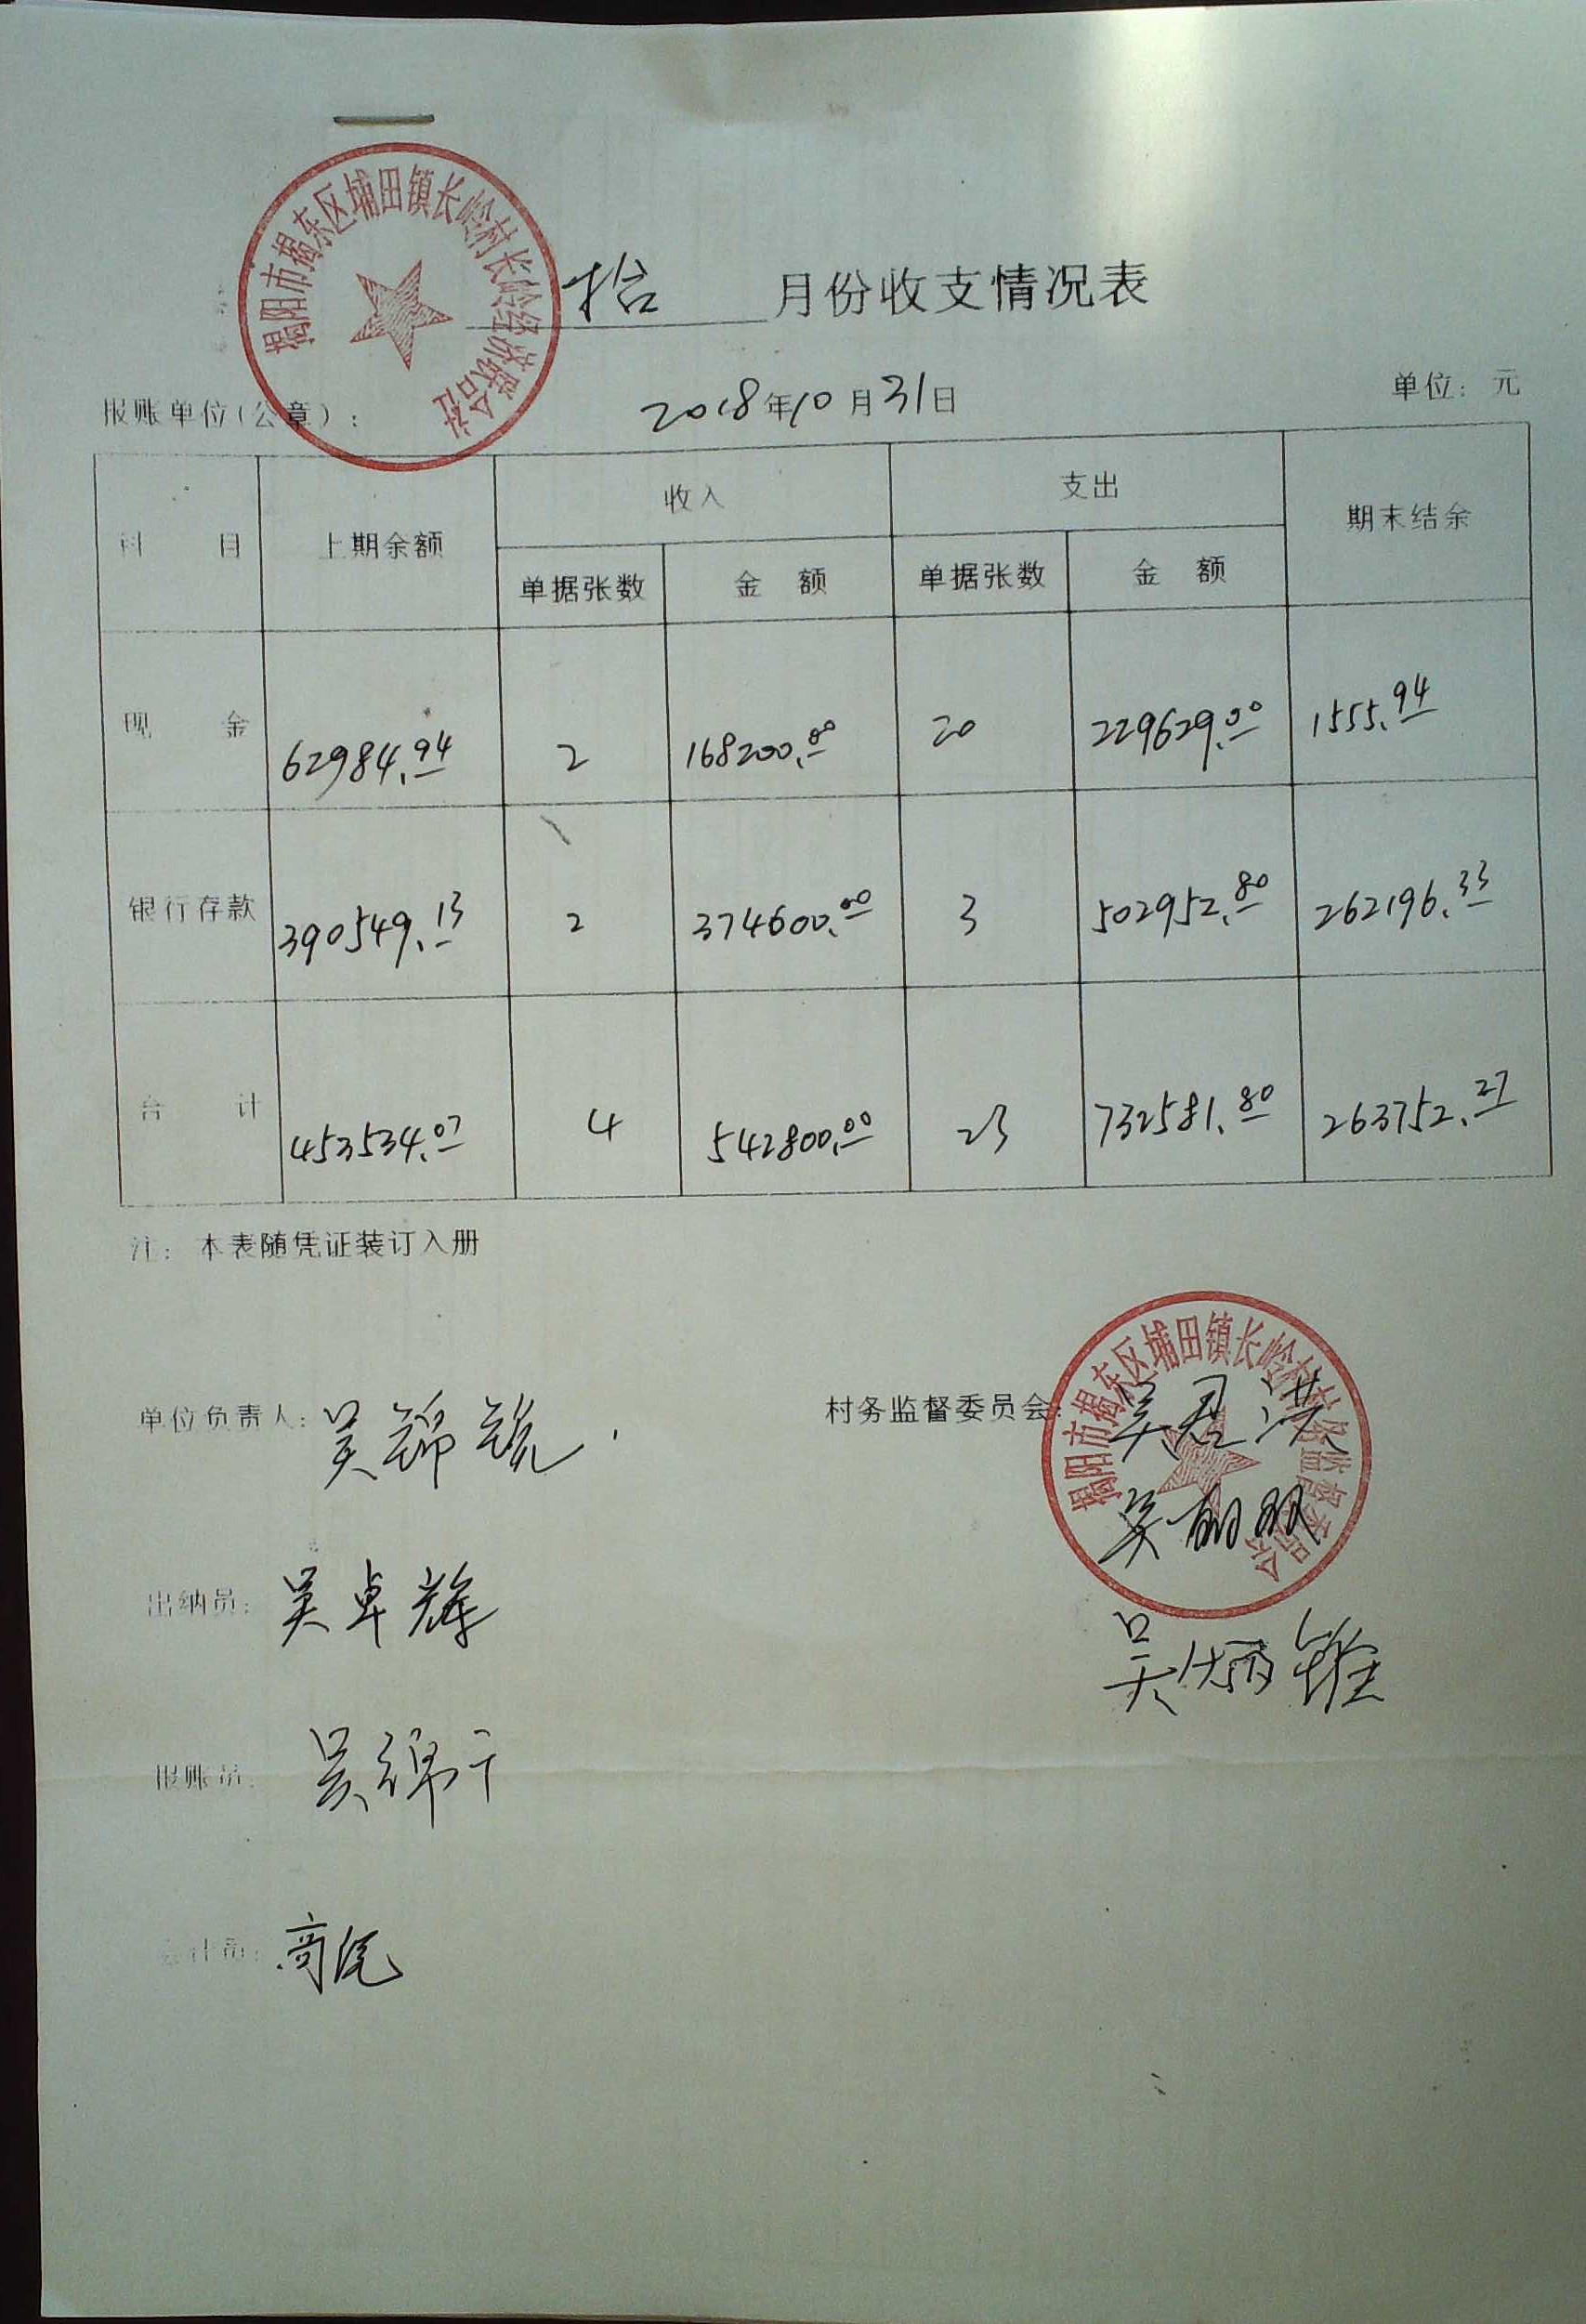 揭阳市揭东区埔田镇长岭村长岭经济联合社
拾 月份收支情况表
报账单位(公章): 2018年10月31日 单位: 元
科 目 上期余额 收入 支出 期末结余
单据张数 金 额 单据张数 金 额
现 金 62984.94 2 168200.00 20 229629.00 1555.94
银行存款 390549.13 2 374600.00 3 502952.80 262196.33
合 计 453534.07 4 542800.00 23 732581.80 263752.27
注: 本表随凭证装订入册
揭阳市揭东区埔田镇长岭村村务监督委员会
单位负责人: 吴锦 村务监督委员会: 吴君洪
吴
出纳员: 吴卓辉
吴炳
报账员: 吴
会计员: